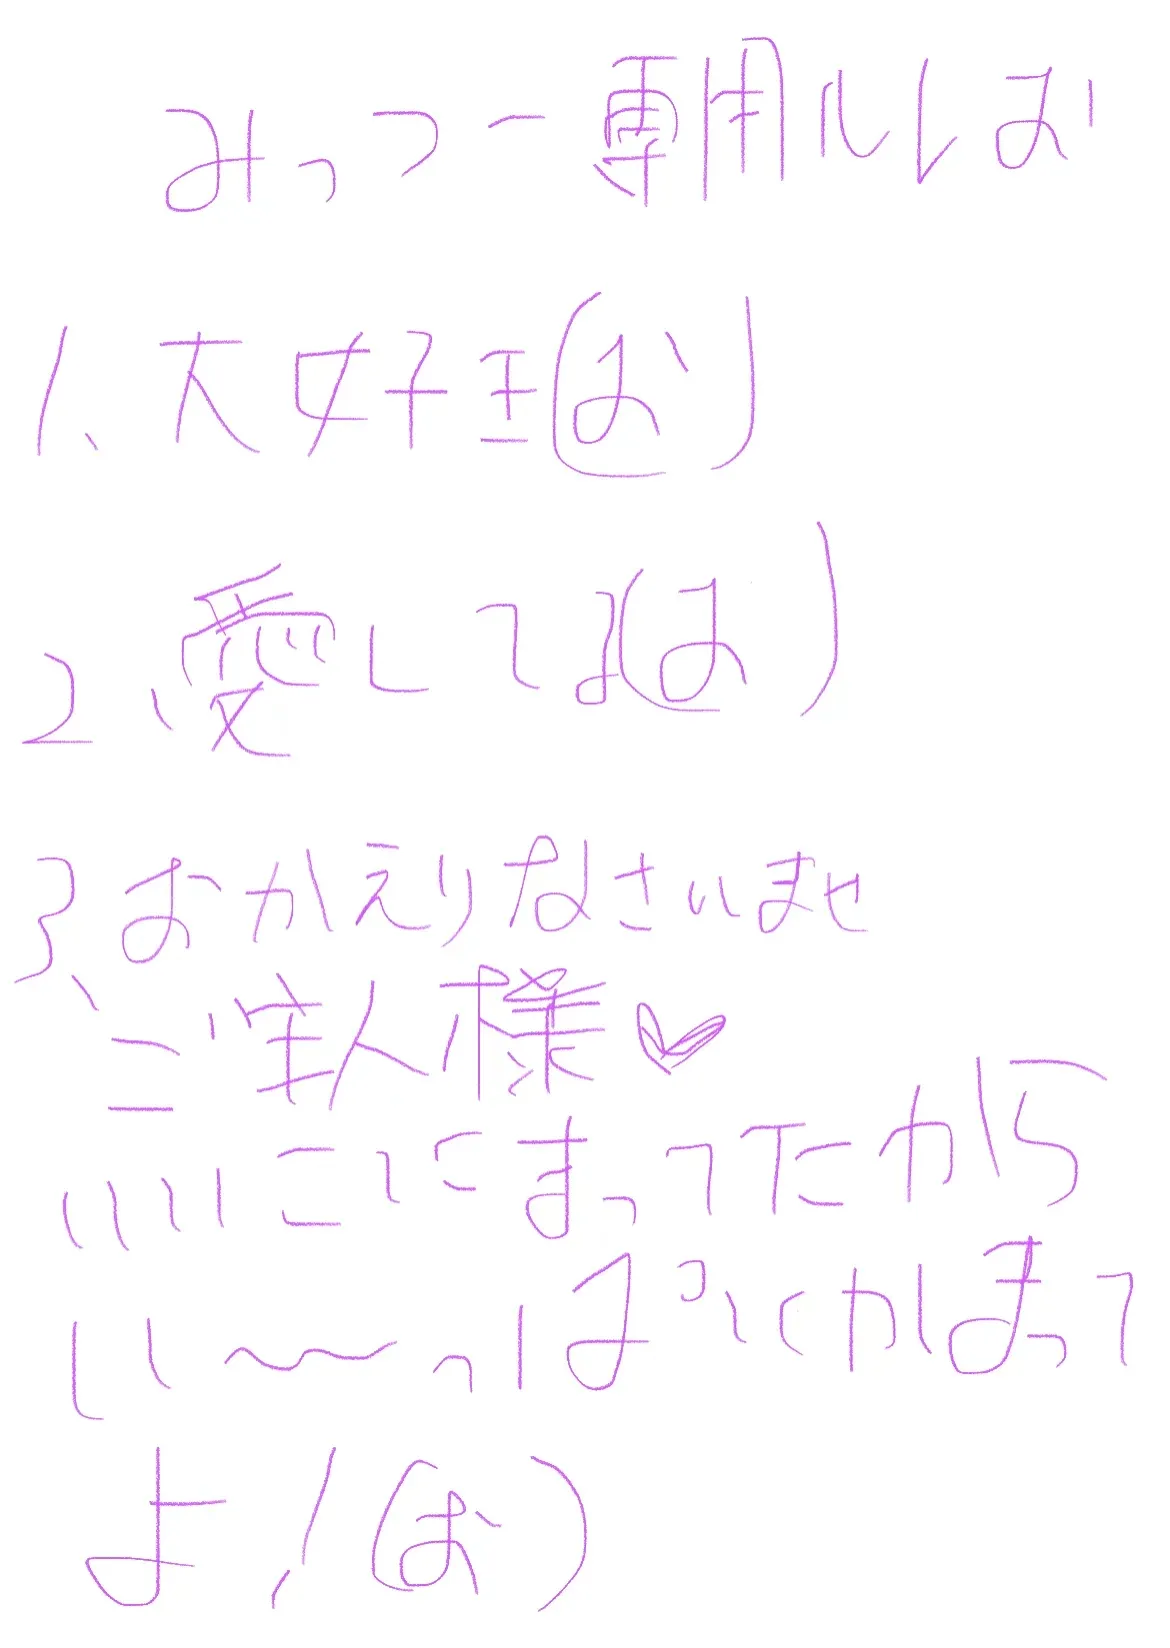 みっつー専用ルしお
1、大好き(お)
2、愛してる(お)
3、おかえりなさいませ
ご主人様♡
いいこにまってたから
い〜っぱいかまって
よ!(お)